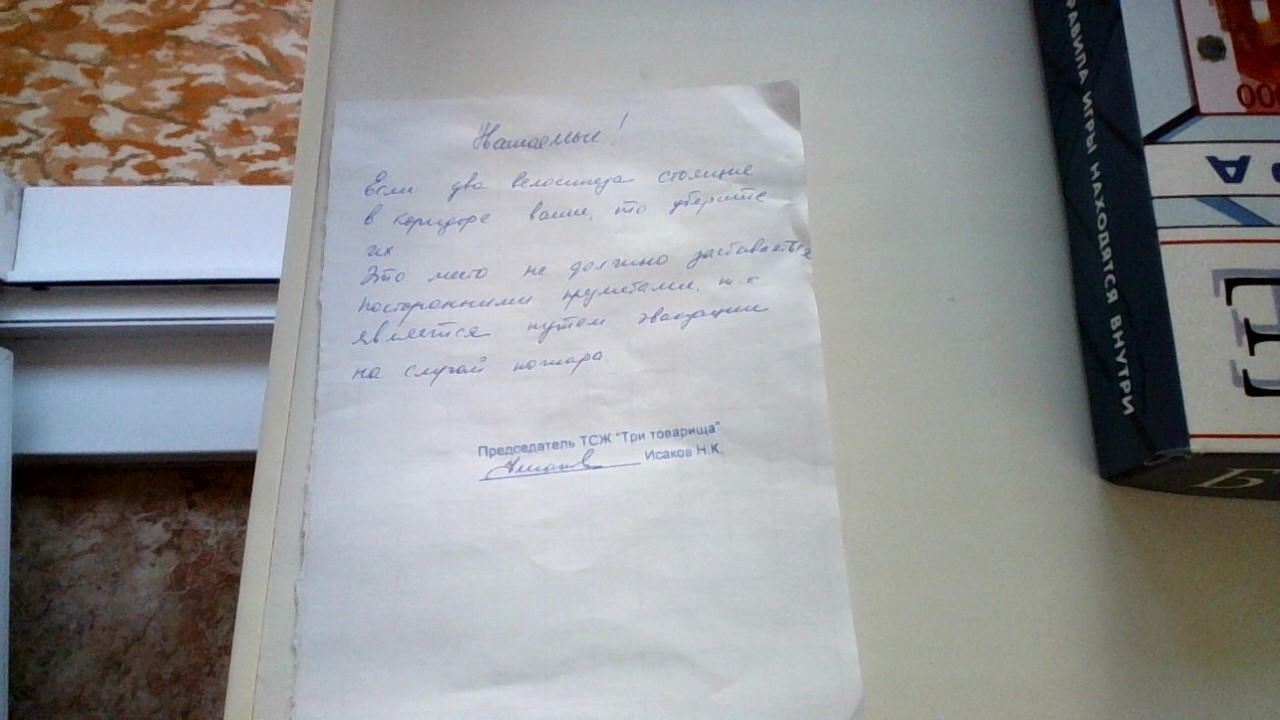 Уважаемые!
Если два велосипеда стоящие
в коридоре ваши, то уберите
их
Это место не должно заставляться
посторонними предметами, т.к
является путем эвакуации
на случай пожара
Председатель ТСЖ "Три товарища"
Исаков Н.К.
ПРАВИЛА ИГРЫ НАХОДЯТСЯ ВНУТРИ